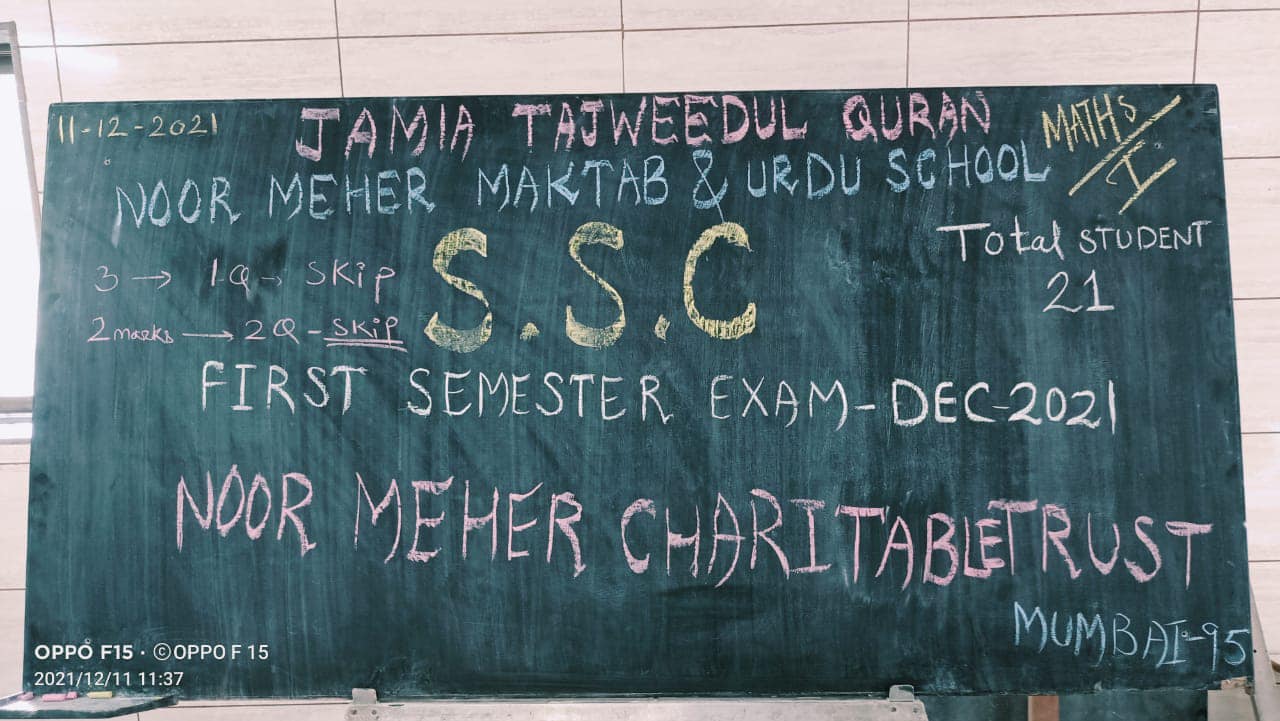 11-12-2021
JAMIA TAJWEEDUL QURAN
MATHS/I
NOOR MEHER MAKTAB & URDU SCHOOL
Total STUDENT
21
3 → 1Q → SKip
2 marks → 2Q - SKiP
S.S.C
FIRST SEMESTER EXAM-DEC-2021
NOOR MEHER CHARITABLE TRUST
MUMBAI-95
OPPO F15 · ©OPPO F 15
2021/12/11 11:37